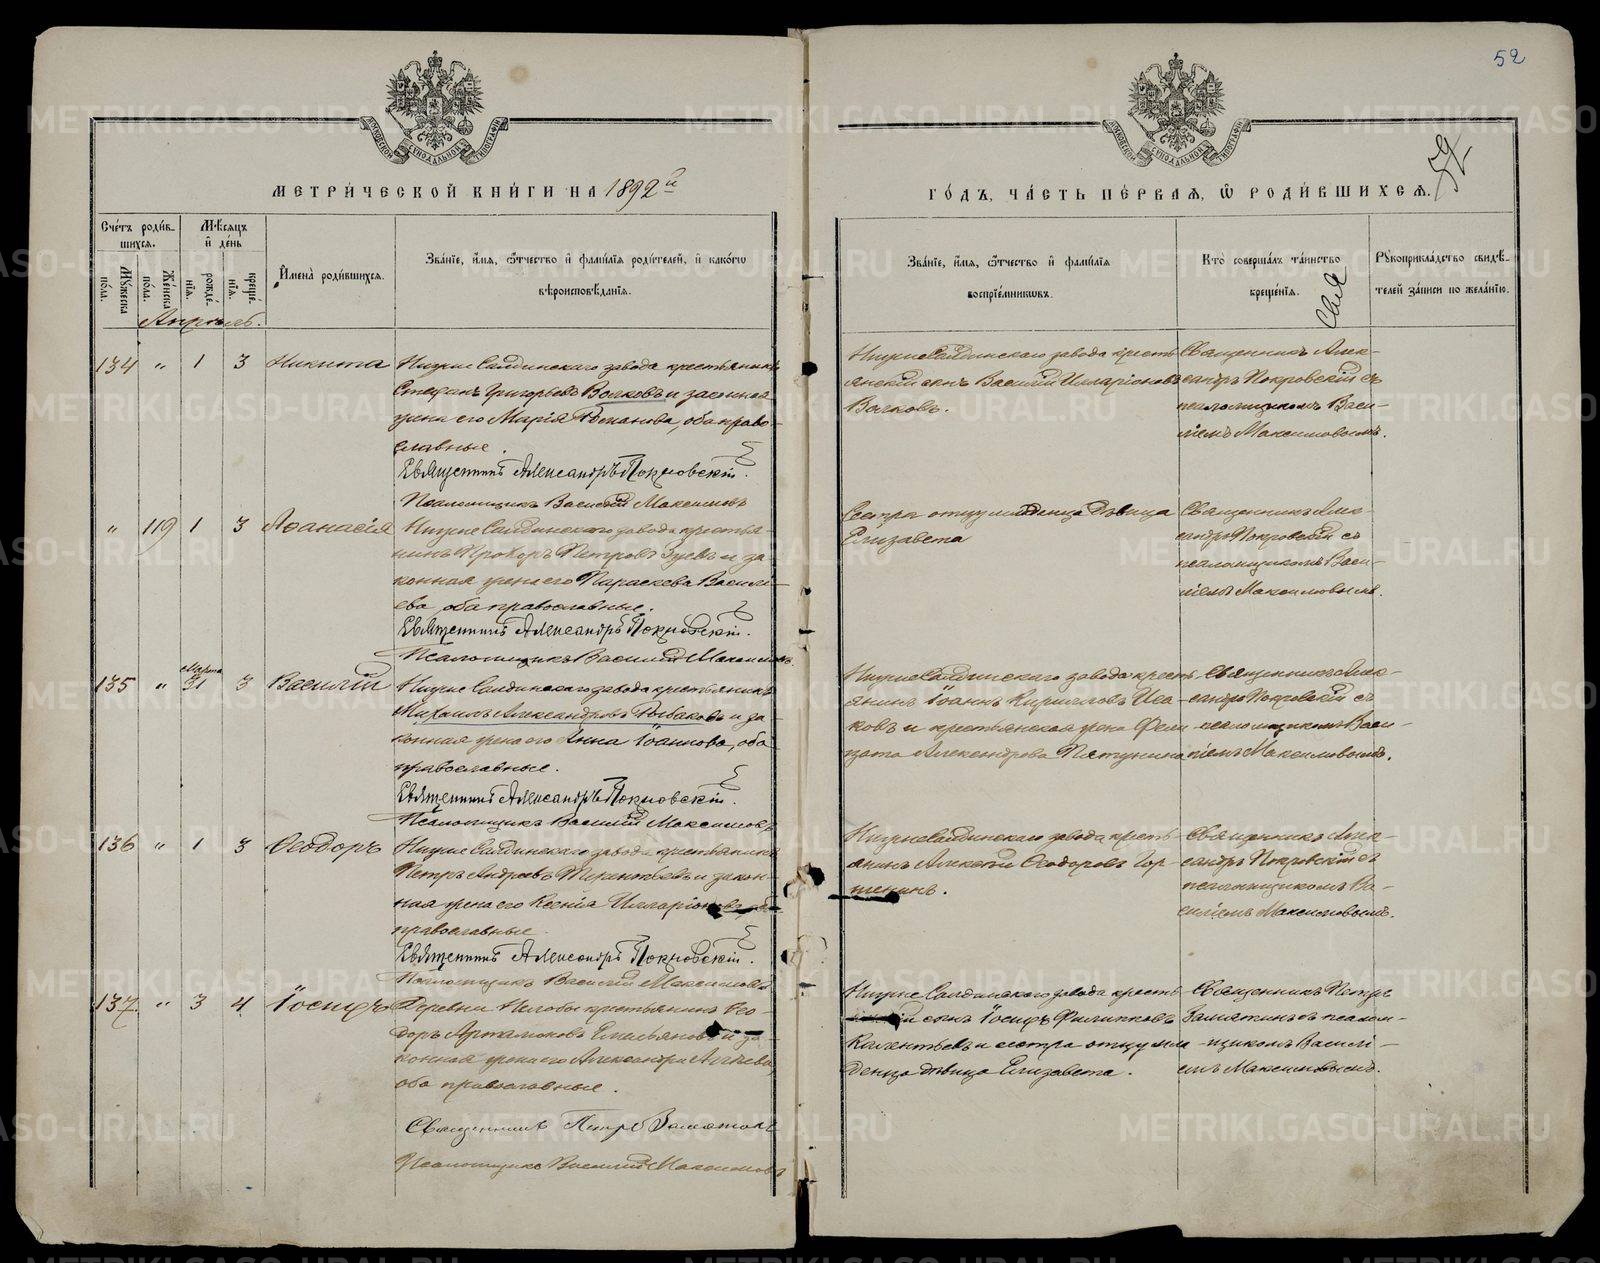 52
МЕТРИ́ЧЕСКОЙ КНИ́ГИ НА 1892й
ГО́ДЪ, ЧА́СТЬ ПЕ́РВАѦ, Ѿ РОДИ́ВШИХСѦ.
Сче́тъ роди́вшихсѧ.
Мꙋ́жеска по́ла.
Же́нска по́ла.
Мѣ́сѧцъ и҆ де́нь
рожде́нїѧ.
креще́нїѧ.
И҆мена̀ роди́вшихсѧ.
Зва́нїе, и҆́мѧ, ѻ҆́тчество и҆ фами́лїѧ роди́телей, и҆ како́гѡ
вѣроисповѣ́данїѧ.
Зва́нїе, и҆́мѧ, ѻ҆́тчество и҆ фами́лїѧ
воспрїе́мникѡвъ.
Кто̀ соверша́лъ та́инство
креще́нїѧ.
Рꙋкоприкла́дство свидѣ́-
телей за́писи по жела́нїю.
Апрѣль.
134 " 1 3 Никита
Нижне Салдинскаго завода крестьянинъ
Стефанъ Григорьевъ Волковъ и законная
жена его Марія Романова, оба право-
славные.
Священникъ Александръ Покровскій.
Псаломщикъ Василій Максимовъ
Нижне Салдинскаго завода кресть-
янскій сынъ Василій Илларіоновъ
Волковъ.
Священникъ Алек-
сандръ Покровскій съ
псаломщикомъ Васи-
ліемъ Максимовымъ.
" 119 1 3 Аѳанасія
Нижне Салдинскаго завода крестья-
нинъ Прокоръ Петровъ Зуевъ и за-
конная жена его Параскева Василь-
ева, оба православные.
Священникъ Александръ Покровскій.
Псаломщикъ Василій Максимовъ
Сестра отцу младенца дѣвица
Елизавета
Священникъ Алек-
сандръ Покровскій съ
псаломщикомъ Васи-
ліемъ Максимовымъ.
135 " Марта 31 3 Василій
Нижне Салдинскаго завода крестьянинъ
Михаилъ Александровъ Рыбаковъ и за-
конная жена его Анна Іоаннова, оба
православные.
Священникъ Александръ Покровскій.
Псаломщикъ Василій Максимовъ
Нижне Салдинскаго завода кресть-
янинъ Іоаннъ Кирилловъ Иса-
ковъ и крестьянская жена Фели-
цата Александрова Пятунина
Священникъ Алек-
сандръ Покровскій съ
псаломщикомъ Васи-
ліемъ Максимовымъ.
136 " 1 3 Ѳеодоръ
Нижне Салдинскаго завода крестьянинъ
Петръ Андреевъ Терентьевъ и закон-
ная жена его Ксенія Илларіонова, оба
православные.
Священникъ Александръ Покровскій.
Псаломщикъ Василій Максимовъ
Нижне Салдинскаго завода кресть-
янинъ Алексѣй Ѳеодоровъ Гор-
шенинъ.
Священникъ Алек-
сандръ Покровскій съ
псаломщикомъ Ва-
силіемъ Максимовымъ.
137. " 3 4 Іосифъ
Деревни Нелобы крестьянинъ Ѳео-
доръ Артамоновъ Емельяновъ и за-
конная жена его Александра
оба православные.
Священникъ Петръ Замятинъ
Псаломщикъ Василій Максимовъ
Нижне Салдинскаго завода кресть-
янскій сынъ Іосифъ Филипповъ
и сестра отцу мла-
денца дѣвица Елизавета.
Священникъ Петръ
Замятинъ съ псалом-
щикомъ Васили-
емъ Максимовымъ.
METRIKI.GASO-URAL.RU